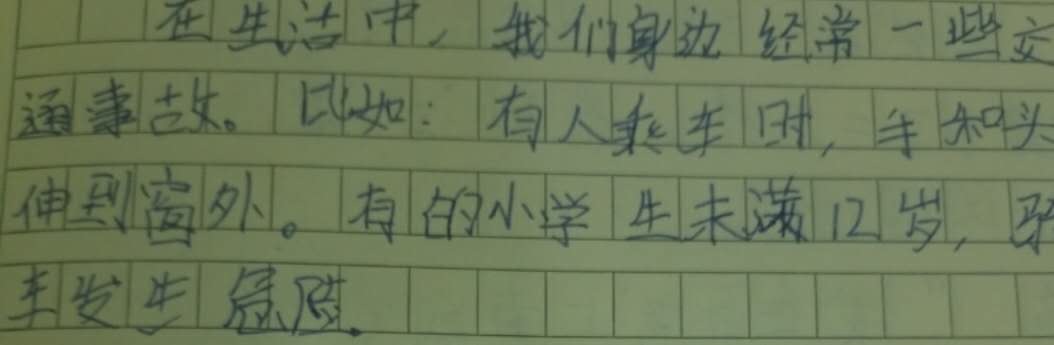 在生活中，我们身边经常一些交
通事故。比如：有人乘车时，手和头
伸到窗外。有的小学生未满12岁，骑
车发生危险。